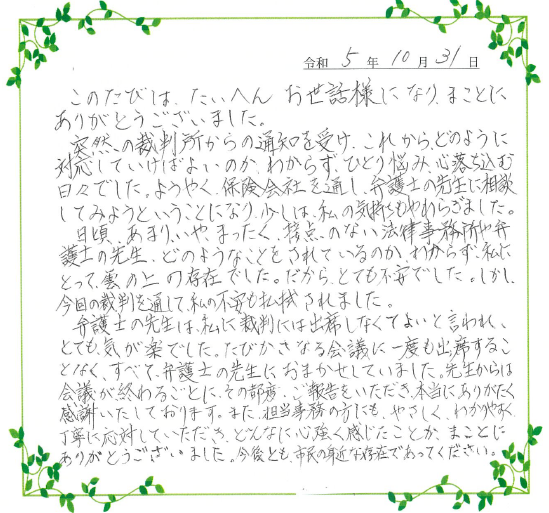 令和 5 年 10 月 31 日
このたびは、たいへん お世話様になり、まことに
ありがとうございました。
突然の裁判所からの通知を受け、これから、どのように
対応していけばよいのか、わからず、ひとり悩み、心落ち込む
日々でした。ようやく、保険会社を通し、弁護士の先生に相談
してみようということになり、少しは、私の気持ちもやわらぎました。
日頃、あまり、いや、まったく、接点のない法律事務所や弁
護士の先生、どのようなことをされているのか、わからず、私に
とって、雲の上の存在でした。だから、とても不安でした。しかし、
今回の裁判を通して、私の不安も払拭されました。
弁護士の先生は、私に裁判には出席しなくてよいと言われ、
とても、気が楽でした。たびかさなる会議に一度も出席するこ
となく、すべて、弁護士の先生におまかせしていました。先生からは
会議が終わるごとに、その都度、ご報告をいただき、本当にありがたく
感謝いたしております。また、担当事務の方にも、やさしく、わかりやすく
丁寧に応対していただき、どんなに心強く感じたことか、まことに
ありがとうございました。今後とも、市民の身近な存在であってください。